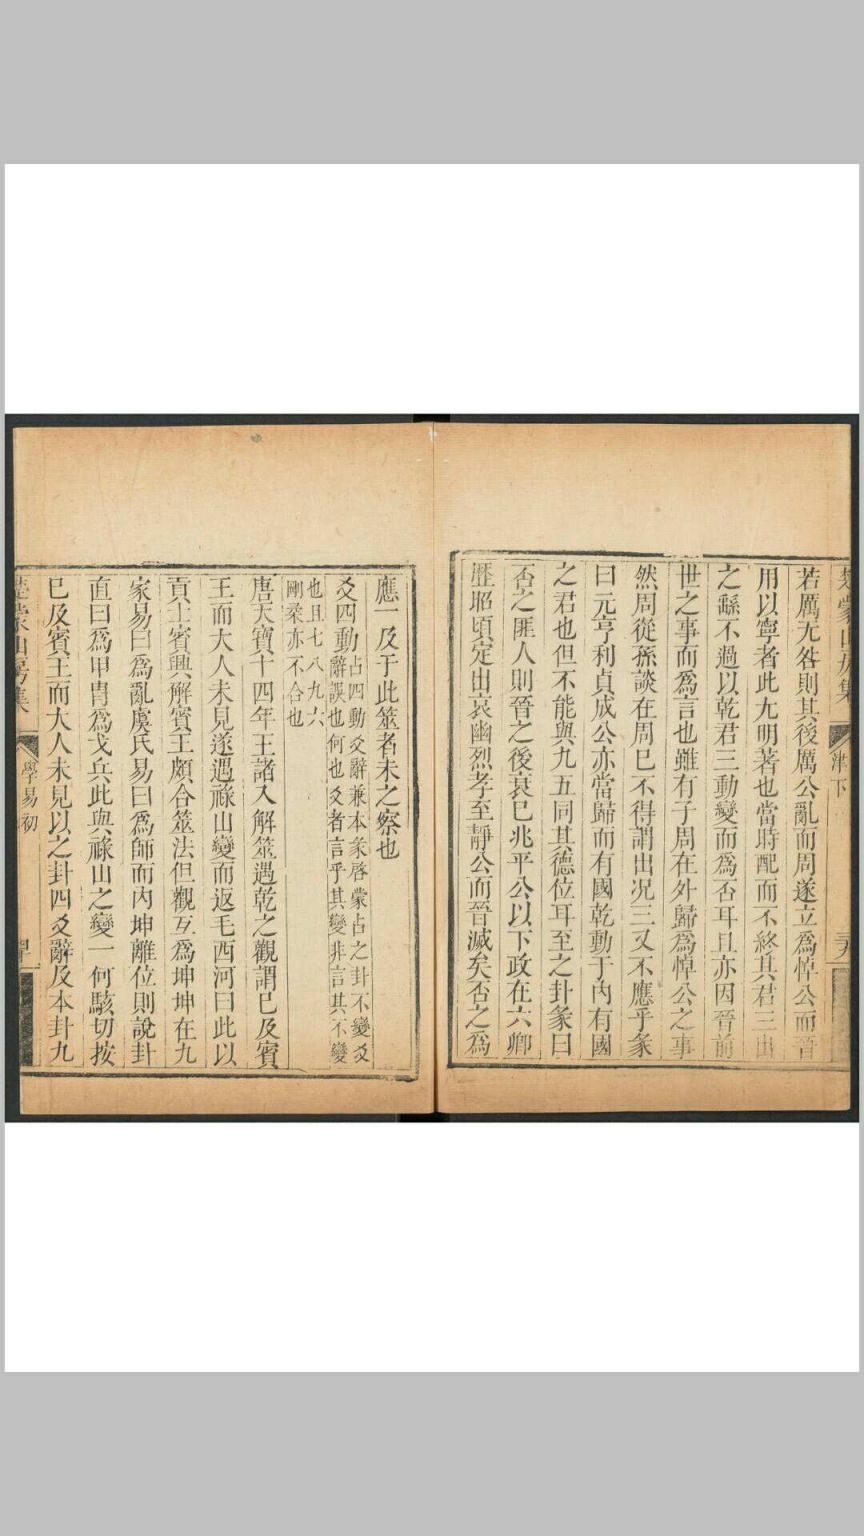 若厲无咎則其後厲公亂而周遂立爲悼公而晉
用以寧者此尢明著也當時配而不終其君三出
之繇不過以乾君三動變而爲否耳且亦因晉前
世之事而爲言也雖有子周在外歸爲悼公之事
然周從孫談在周巳不得謂出况三又不應乎彖
曰元亨利貞成公亦當歸而有國乾動于內有國
之君也但不能與九五同其德位耳至之卦彖曰
否之匪人則晉之後哀巳兆平公以下政在六卿
歷昭頃定出哀幽烈孝至靜公而晉滅矣否之爲
應一及于此筮者未之察也
爻四動占四動爻辭兼本彖啓蒙占之卦不變爻
辭誤也何也爻者言乎其變非言其不變
也且七八九六
剛柔亦不合也
唐天寶十四年王諸入解筮遇乾之觀謂巳及賓
王而大人未見遂遇祿山變而返毛西河曰此以
貢士賓興解賓王頗合筮法但觀互爲坤坤在九
家易曰爲亂虞氏易曰爲師而內坤離位則說卦
直曰爲甲冑爲戈兵此與祿山之變一何駭切按
巳及賓王而大人未見以之卦四爻辭及本卦九
學易初